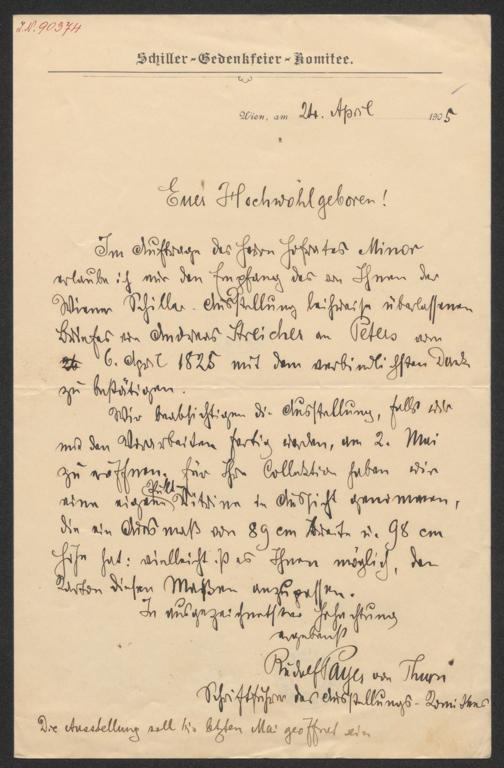 J.N. 90374
Schiller-Gedenkfeier-Komitee.
Wien, am 24. April 1905
Euer Hochwohlgeboren!
Im Auftrage des Herrn Hofrates Minor
erlaube ich mir den Empfang des von Ihnen der
Wiener Schiller-Ausstellung leihweise überlassenen
Briefes von Andreas Streicher an Peters vom
6. April 1825 mit dem verbindlichsten Dank
zu bestätigen.
Wir beabsichtigen die Ausstellung, falls wir
mit den Vorarbeiten fertig werden, am 2. Mai
zu eröffnen. Für Ihre Collektion haben wir
eine eigene Pult Vitrine in Aussicht genommen,
die ein Ausmaß von 89 cm Breite u. 98 cm
Höhe hat: vielleicht ist es Ihnen möglich, den
Karton diesen Maßen anzupassen.
In ausgezeichnetster Hochachtung
ergebenst
Rudolf Payer von Thurn
Schriftführer des Ausstellungs-Komitees
Die Ausstellung soll bis letzten Mai geöffnet sein